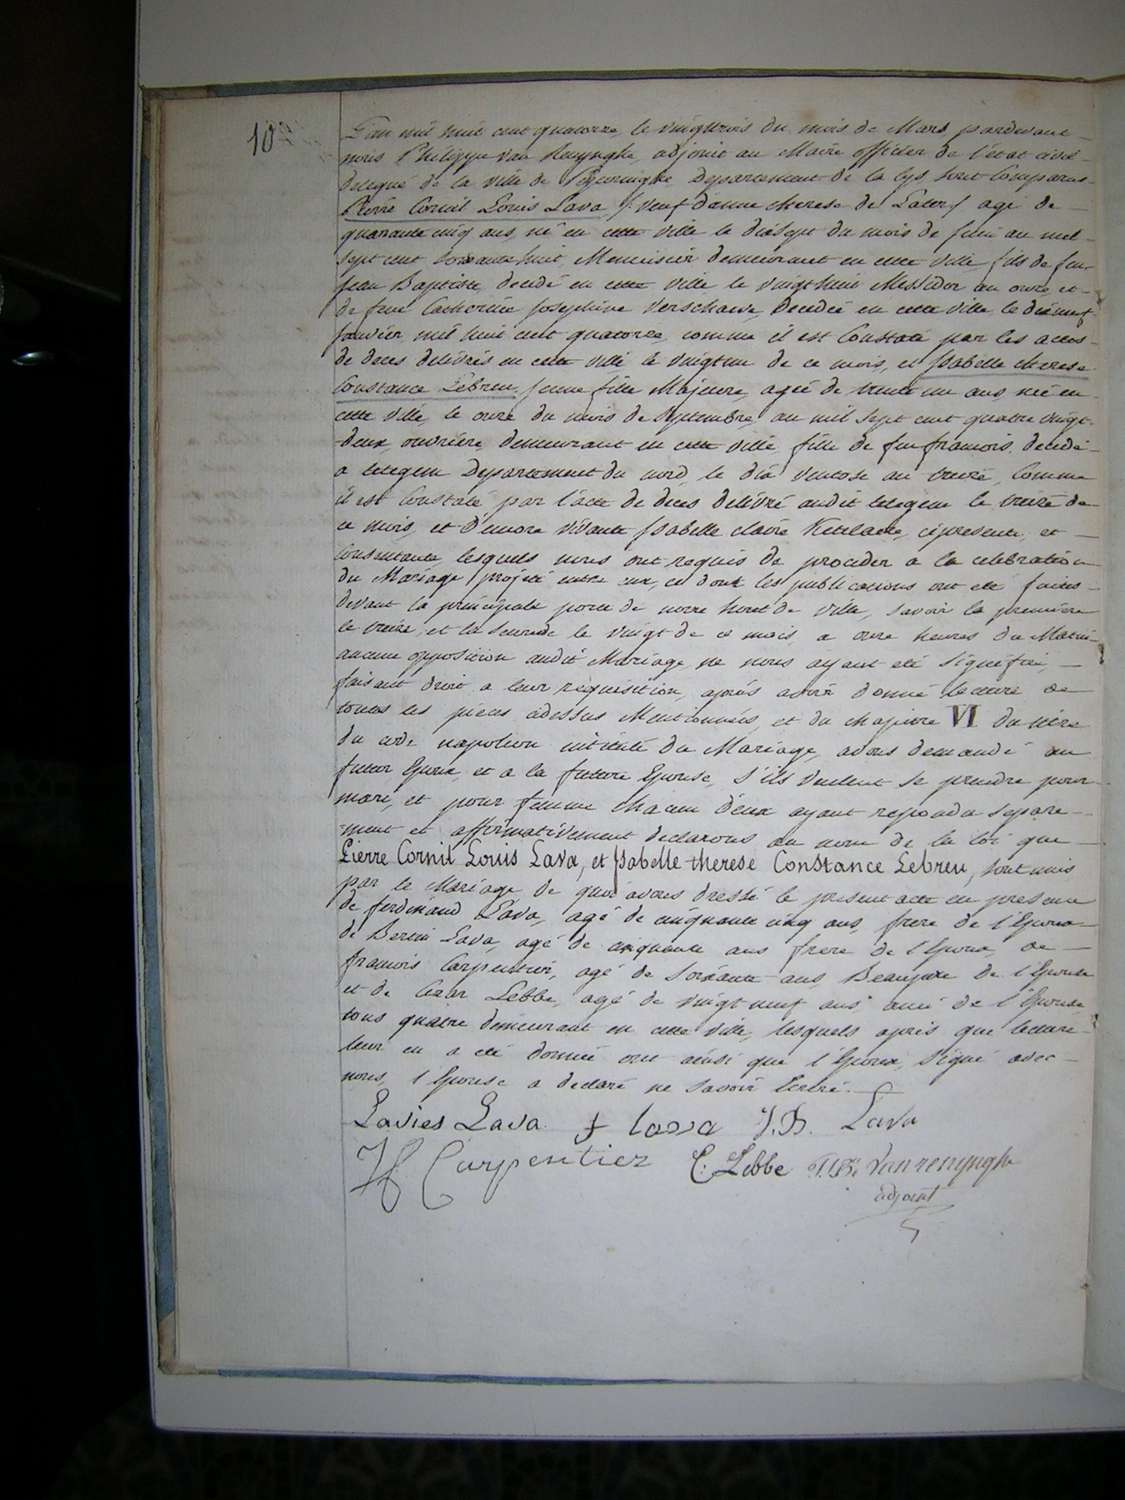 10
L'an mil huit cent quatorze, le vingt trois du mois de Mars pardevant
nous Philippe van Renynghe, adjoint au Maire officier de l'etat civil
delegué de la ville de Poperinghe Departement de la Lys sont Comparus
Pierre Cornil Louis Lava, veuf d'anne therese de agé de
quarante cinq ans, né en cette ville le dixsept du mois de juin an mil
sept cent soixante huit Menuisier demeurant en cette ville fils de feu
jean Baptiste decedé en cette ville le vingt huit Messidor an onze et
de feue Catherine josephine Verschaeve, Decedée en cette ville, le dixneuf
janvier mil huit cent quatorze, comme il est Constaté par les actes
de deces delivrés en cette ville le vingt un de ce mois, et Isabelle therese
Constance Lebreu, jeune fille Majeure, agée de trente un ans née en
cette ville, le onze du mois de Septembre an mil sept cent quatre vingt
deux, ouvriere, demeurant en cette ville, fille de feu francois, decedé
a Ledegem Departement du nord, le dix ventose an treize, Comme
il est Constaté par l'acte de deces delivré audit Ledegem le treize de
ce mois, et d'encore vivante Isabelle claire cipresente, et
Consentante, lesquels nous ont requis de proceder a la celebration
du Mariage projeté entre eux, et dont les publications ont été faites
devant la principale porte de notre hotel de ville, savoir la premiere
le treize, et la seconde le vingt de ce mois a onze heures du Matin
aucune opposition audit Mariage ne nous ayant eté signifiée,
faisant droit a leur requisition, aprés avoir donné lecture de
toutes les pieces cidessus Mentionnées et du chapitre VI du titre
du code napoleon intitulé du Mariage, avons demandé au
futur Epoux, et a la future Epouse, s'ils veulent se prendre pour
mari, et pour femme chacun d'eux ayant repondu separe-
ment et affirmativement declarons au nom de la loi que
Pierre Cornil Louis Lava, et Isabelle therese Constance Lebreu, sont unis
par le Mariage de quoi avons dressé le present acte en presence
de ferdinand Lava, agé de cinquante cinq ans, frere de l'Epoux
de Bertin Lava, agé de cinquante ans frere de l'Epoux, de
francois Carpentier, agé de soixante ans, Beaupere de l'Epouse
et de Cesar Lebbe, agé de vingt neuf ans ami de l'Epouse,
tous quatre demeurant en cette ville, lesquels aprés que lecture
leur en a eté donnée ont ainsi que l'Epoux, signé avec
nous, l'Epouse a declaré ne savoir Ecrire.
Lava f lava J.B. Lava
Carpentier C. Lebbe Vanrenynghe
adjoint